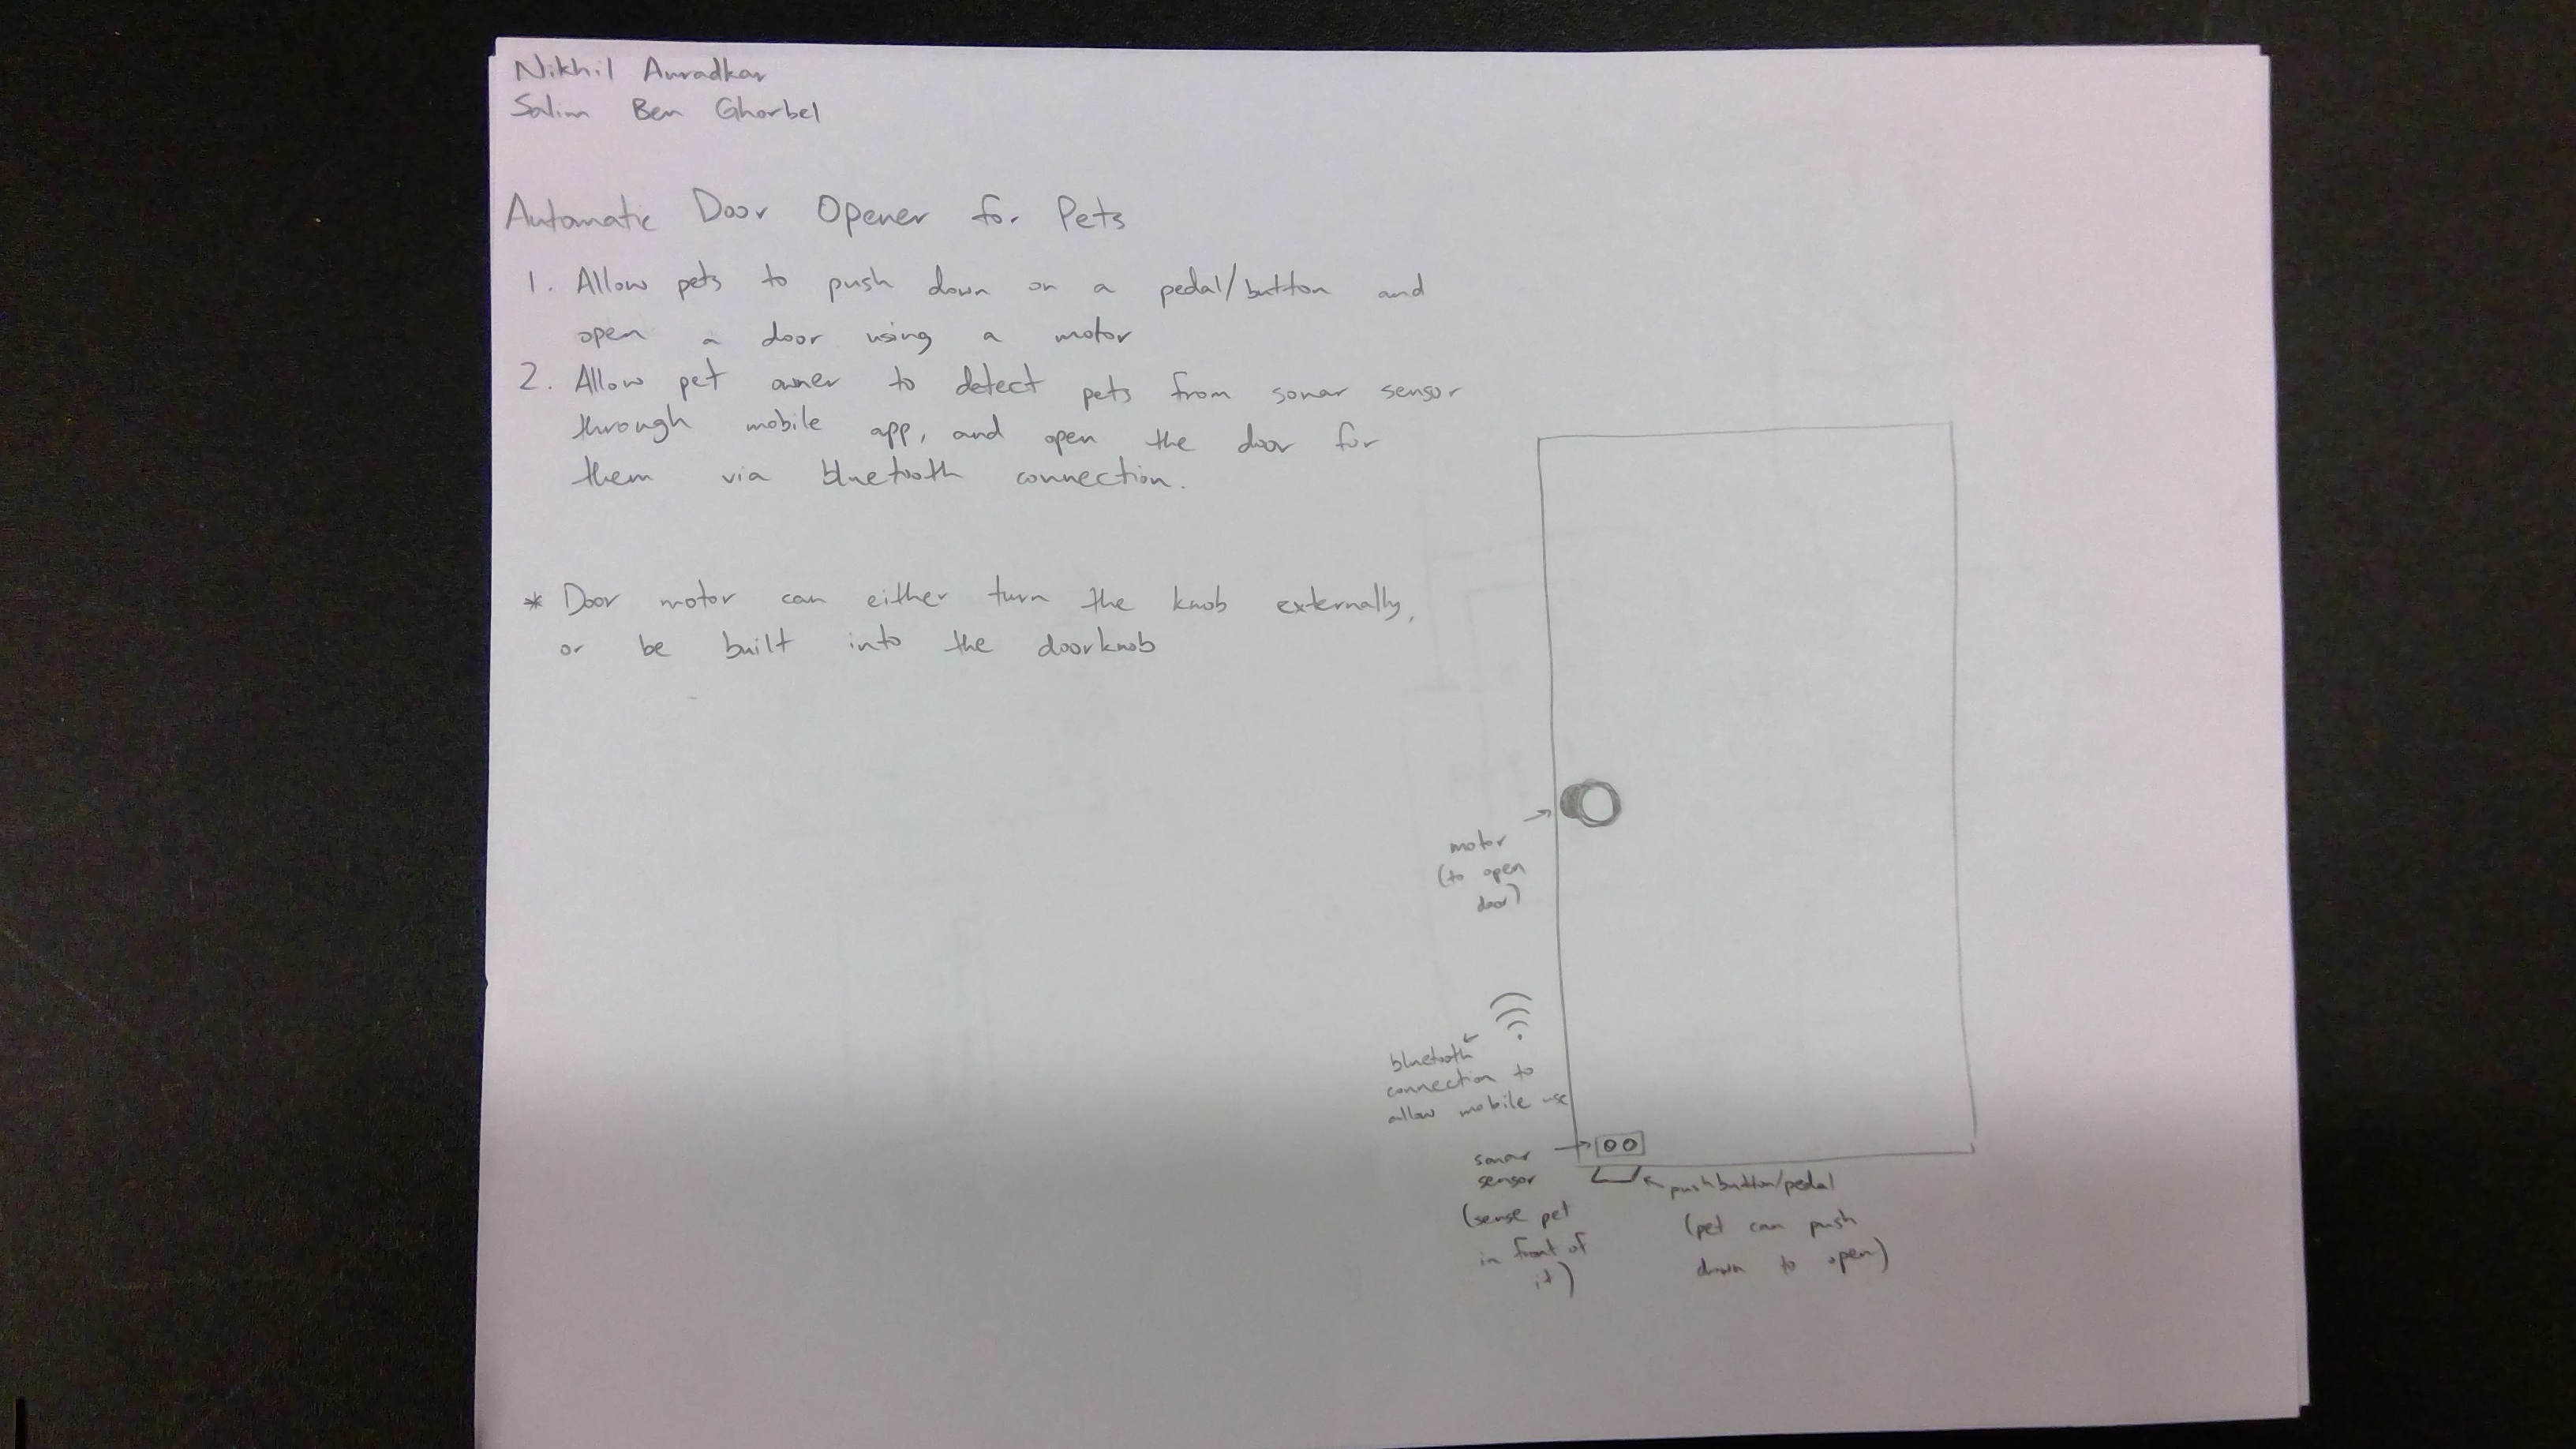 Nikhil Auradkar
Salim Ben Ghorbel
Automatic Door Opener for Pets
1. Allow pets to push down on a pedal/button and
open a door using a motor
2. Allow pet owner to detect pets from sonar sensor
through mobile app, and open the door for
them via bluetooth connection.
* Door motor can either turn the knob externally,
or be built into the doorknob
motor
(to open
door)
bluetooth
connection to
allow mobile use
sonar
sensor
(sense pet
in front of
it)
pushbutton/pedal
(pet can push
down to open)